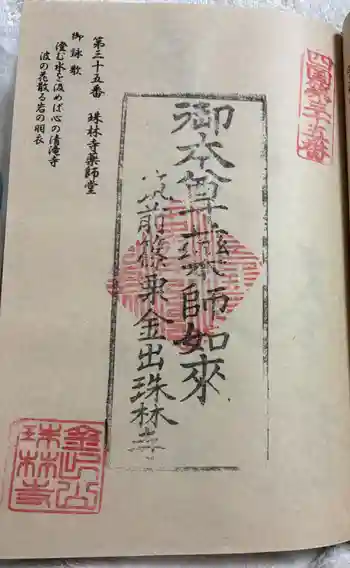 四國第三十五番
第三十五番　珠林寺薬師堂
御詠歌
澄む水を汲めば心の清滝寺
波の花散る岩の羽衣
御本尊薬師如來
筑前篠栗金出珠林寺
金出山
珠林寺